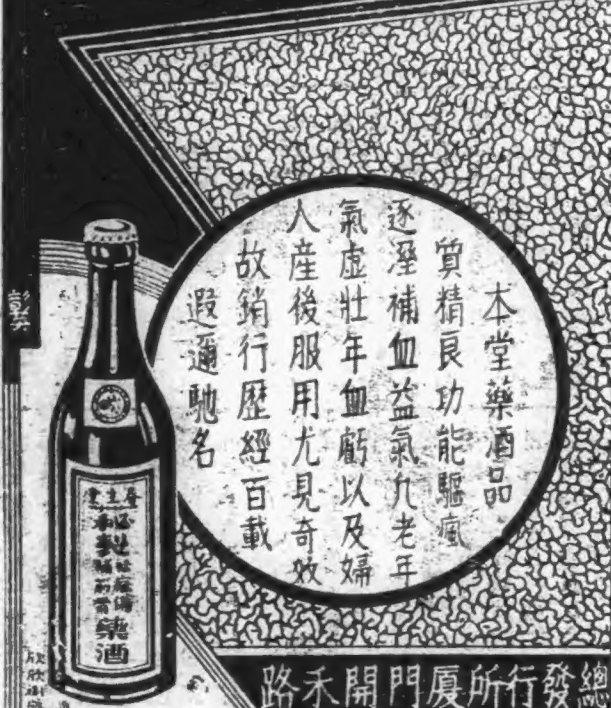 本堂藥酒品
質精良功能驅瘋
逐溼補血益氣凡老年
氣虛壯年血虧以及婦
人産後服用尤見奇效
故銷行歷經百載
遐邇馳名
藥酒
總發行所厦門開禾路